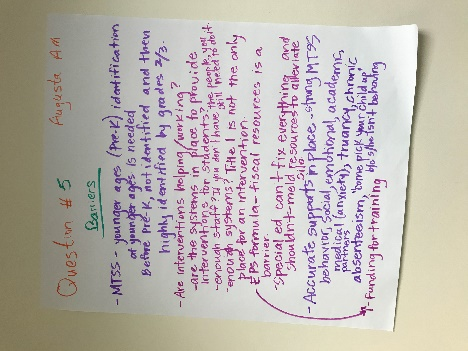 Question #5
Augusta AM
Barriers
- MTSS - younger ages (Pre-K) identification
at younger ages is needed
Before Pre-K, not identified and then
highly identified by grades 2/3.
- Are interventions helping/working?
- are the systems in place to provide
interventions for students?
- enough staff? If you don't have the people, you still need to do it.
- enough systems? Title I is not the only
place for an intervention.
- EPS formula - fiscal resources is a
barrier.
- Special ed can't fix everything and
shouldn't - meld resources to alleviate
silo
- Accurate supports in place - strong MTSS
behavior, social, emotional, academic,
medical (anxiety), truancy, chronic
partners
absenteeism, "come pick your child up"
b/c s/he isn't behaving
* Funding for training